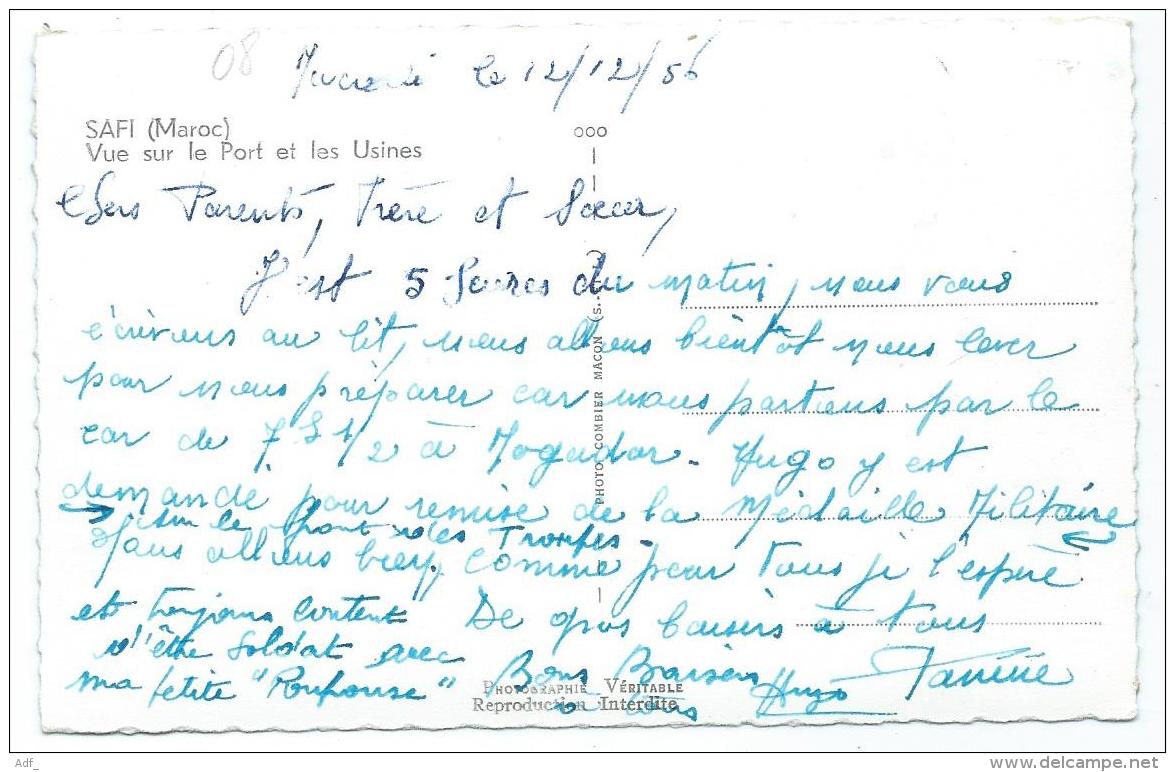 08
Mercredi le 12/12/56
SAFI (Maroc)
Vue sur le Port et les Usines
ooo
Chers Parents, Frère et Sœur,
Il est 5 heures du matin, nous vous
écrivons au lit, nous allons bientôt nous lever
pour nous préparer car nous partons par le
car de 7 h 1/2 à Mogador. Hugo y est
demandé pour remise de la Médaille Militaire
sur le front des Troupes.
Nous allons bien, comme pour tous je l'espère
et toujours content De gros baisers à tous
d'être soldat avec
ma petite Bons Baisers
à tous Hugo
PHOTO COMBIER MACON (S.
PHOTOGRAPHIE VÉRITABLE
Reproduction Interdite
Adf_
www.delcampe.net